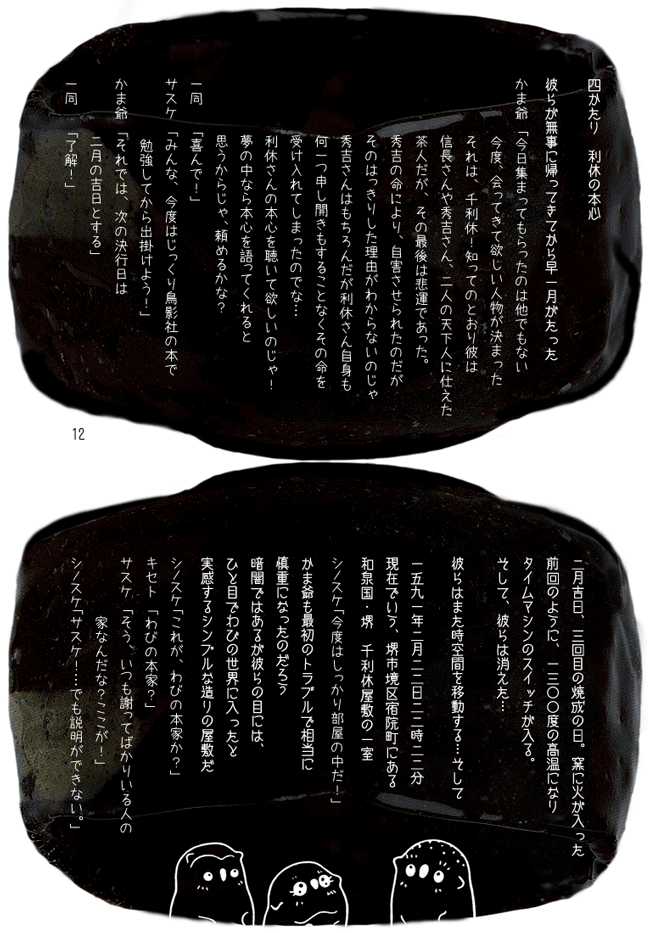 四かたり　利休の本心
彼らが無事に帰ってきてから早一月がたった
かま爺「今日集まってもらったのは他でもない
今度、会ってきて欲しい人物が決まった
それは、千利休！知ってのとおり彼は
信長さんや秀吉さん、二人の天下人に仕えた
茶人だが、その最後は悲運であった。
秀吉の命により、自害させられたのだが
そのはっきりした理由がわからないのじゃ
秀吉さんはもちろんだが利休さん自身も
何一つ申し開きもすることなくその命を
受け入れてしまったのでな…
利休さんの本心を聴いて欲しいのじゃ！
夢の中なら本心を語ってくれると
思うからじゃ、頼めるかな？
一同　「喜んで！」
サスケ「みんな、今度はじっくり鳥影社の本で
勉強してから出掛けよう！」
かま爺「それでは、次の決行日は
二月の吉日とする」
一同　「了解！」
12
二月吉日、三回目の焼成の日。窯に火が入った
前回のように、一三〇〇度の高温になり
タイムマシンのスイッチが入る。
そして、彼らは消えた…
彼らはまた時空間を移動する…そして
一五九一年二月二二日二二時二二分
現在でいう、堺市堺区宿院町にある
和泉国・堺　千利休屋敷の一室
シノスケ「今度はしっかり部屋の中だ！」
かま爺も最初のトラブルで相当に
慎重になったのだろう
暗闇ではあるが彼らの目には、
ひと目でわびの世界に入ったと
実感するシンプルな造りの屋敷だ
シノスケ「これが、わびの本家か？」
キセト「わびの本家？」
サスケ「そう、いつも謝ってばかりいる人の
家なんだな？ここが！」
シノスケ「サスケ！…でも説明ができない。」